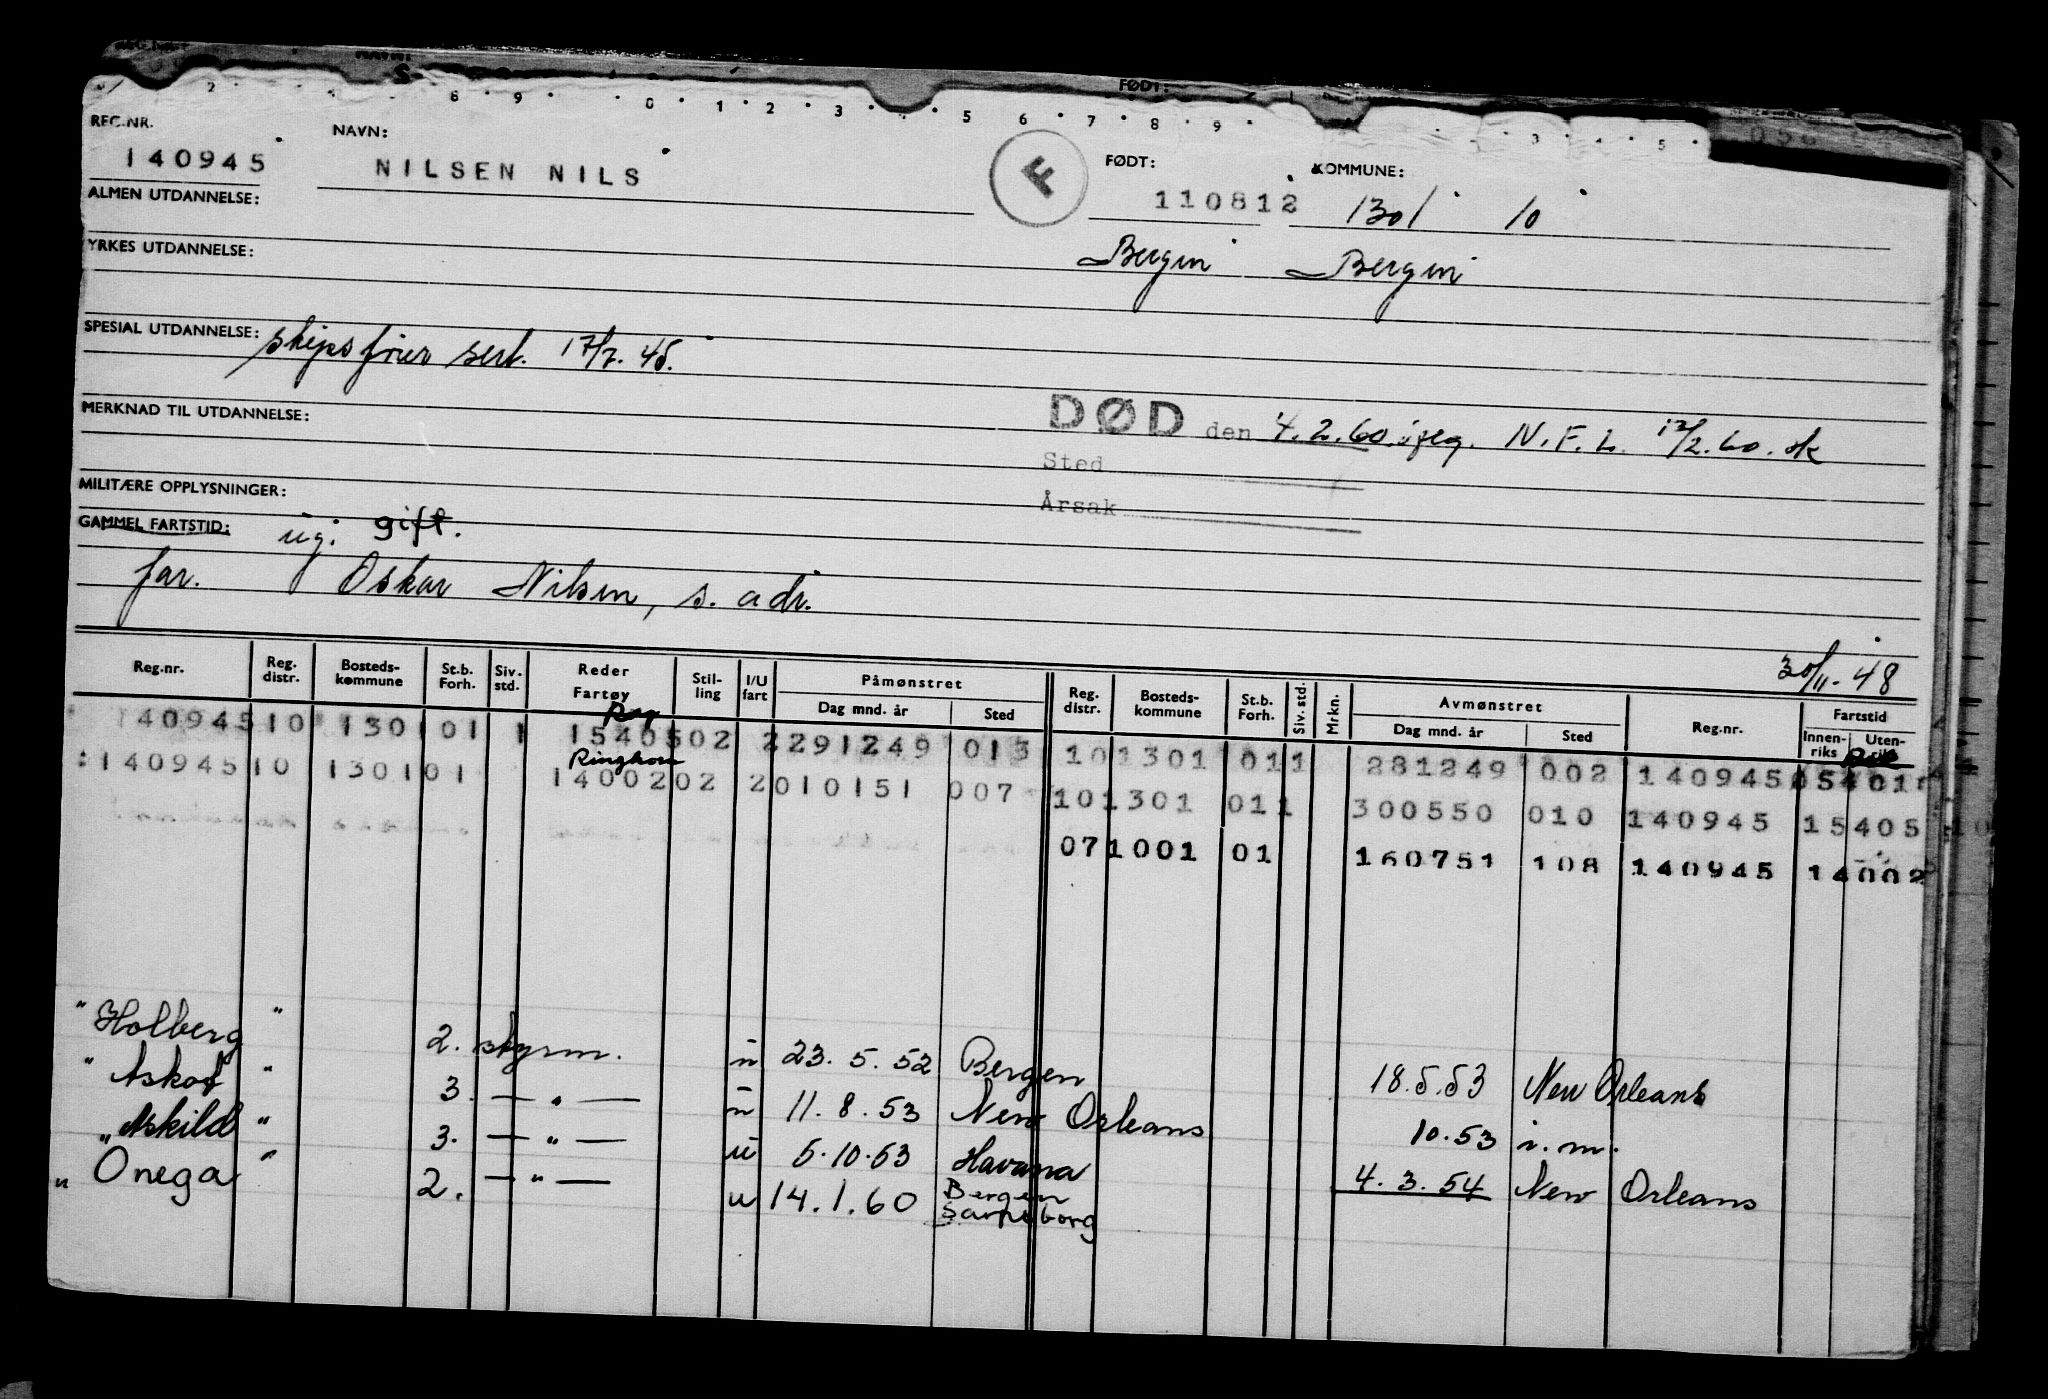 REG.NR. NAVN: FØDT: KOMMUNE:
140945 NILSEN NILS F 110812 1301 10
ALMEN UTDANNELSE:
YRKES UTDANNELSE: Bergen Bergen
SPESIAL UTDANNELSE: skipsfører sert. 17/7.45.
MERKNAD TIL UTDANNELSE:
DØD den 4.2.60. N.F.L. 12/2.60. sk
Sted
MILITÆRE OPPLYSNINGER: Årsak
GAMMEL FARTSTID: ug: gift.
far. Oskar Nilsen, s. adr.
30/11-48
Reg.nr. Reg. distr. Bosteds-kommune St.b. Forh. Siv. std. Reder Fartøy Stil-ling I/U fart Påmønstret Dag mnd. år Sted Reg. distr. Bosteds-kommune St.b. Forh. Siv. std. Mrkn. Avmønstret Dag mnd. år Sted Reg.nr. Fartstid Innen-riks Uten-
140945 10 1301 01 1 15405 02 2 291249 013 10 1301 01 1 281249 002 140945
Ringhorn
140945 10 1301 01 14002 02 2 010151 007 10 1301 01 1 300550 010 140945 15405
07 1001 01 160751 108 140945 14002
"Holberg" 2. styrm. u 23.5.52 Bergen 18.5.53 New Orleans
"Askot" 3. — " — u 11.8.53 New Orleans 10.53 i.m.
"Askild" 3. — " — u 5.10.53 Havana 4.3.54 New Orleans
"Onega" 2. — " — u 14.1.60 Bergen
Sarpsborg